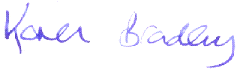 Karen Bradley